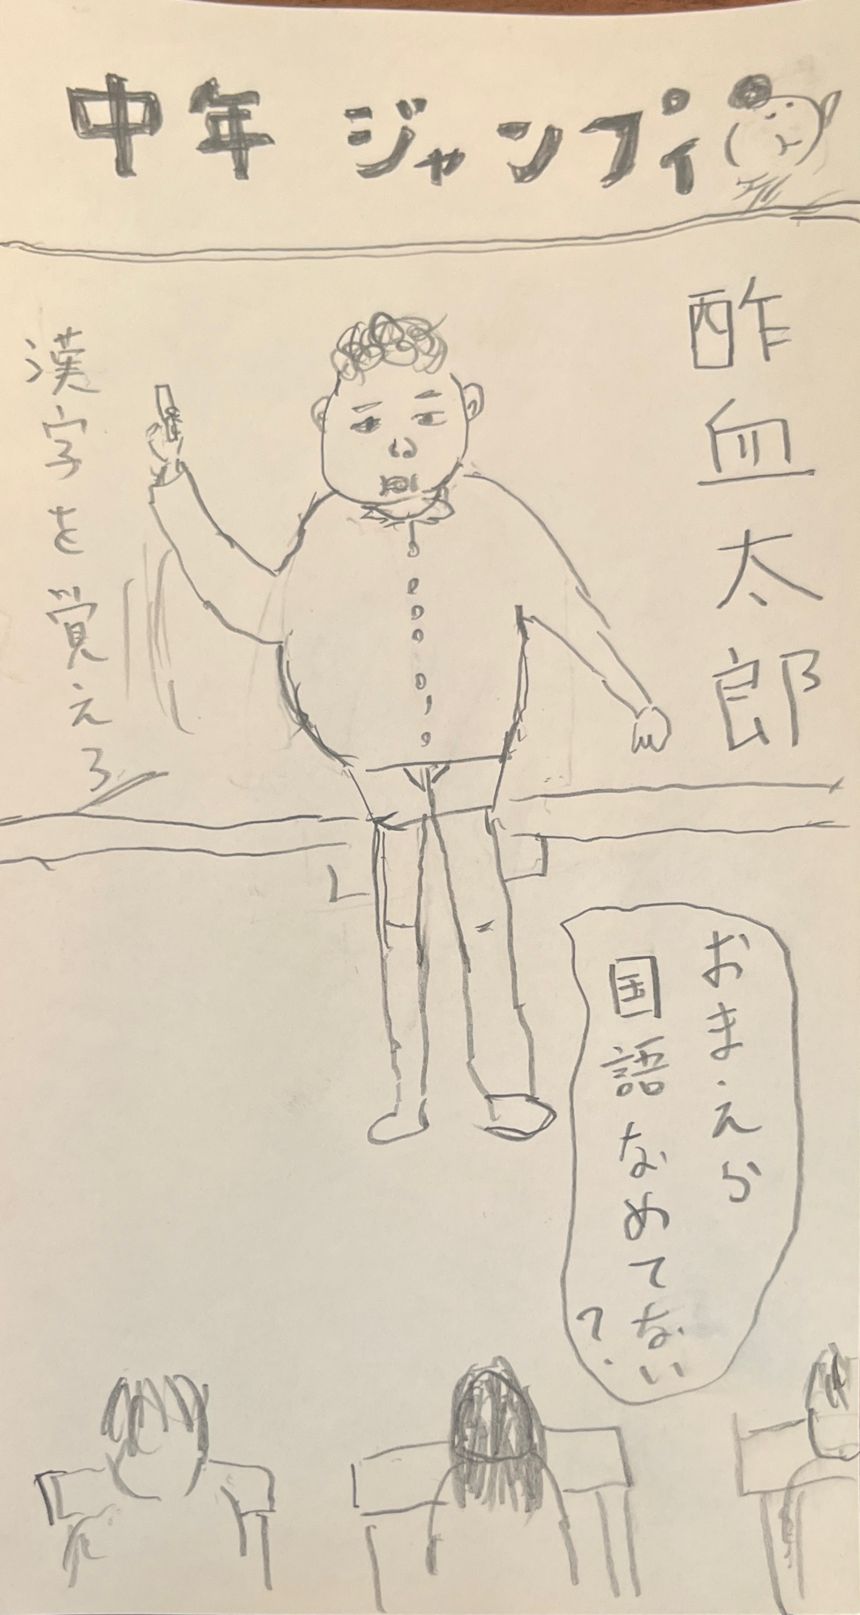 中年ジャンプィ
酢血太郎
漢字を覚えろ
おまえら
国語なめてない
?